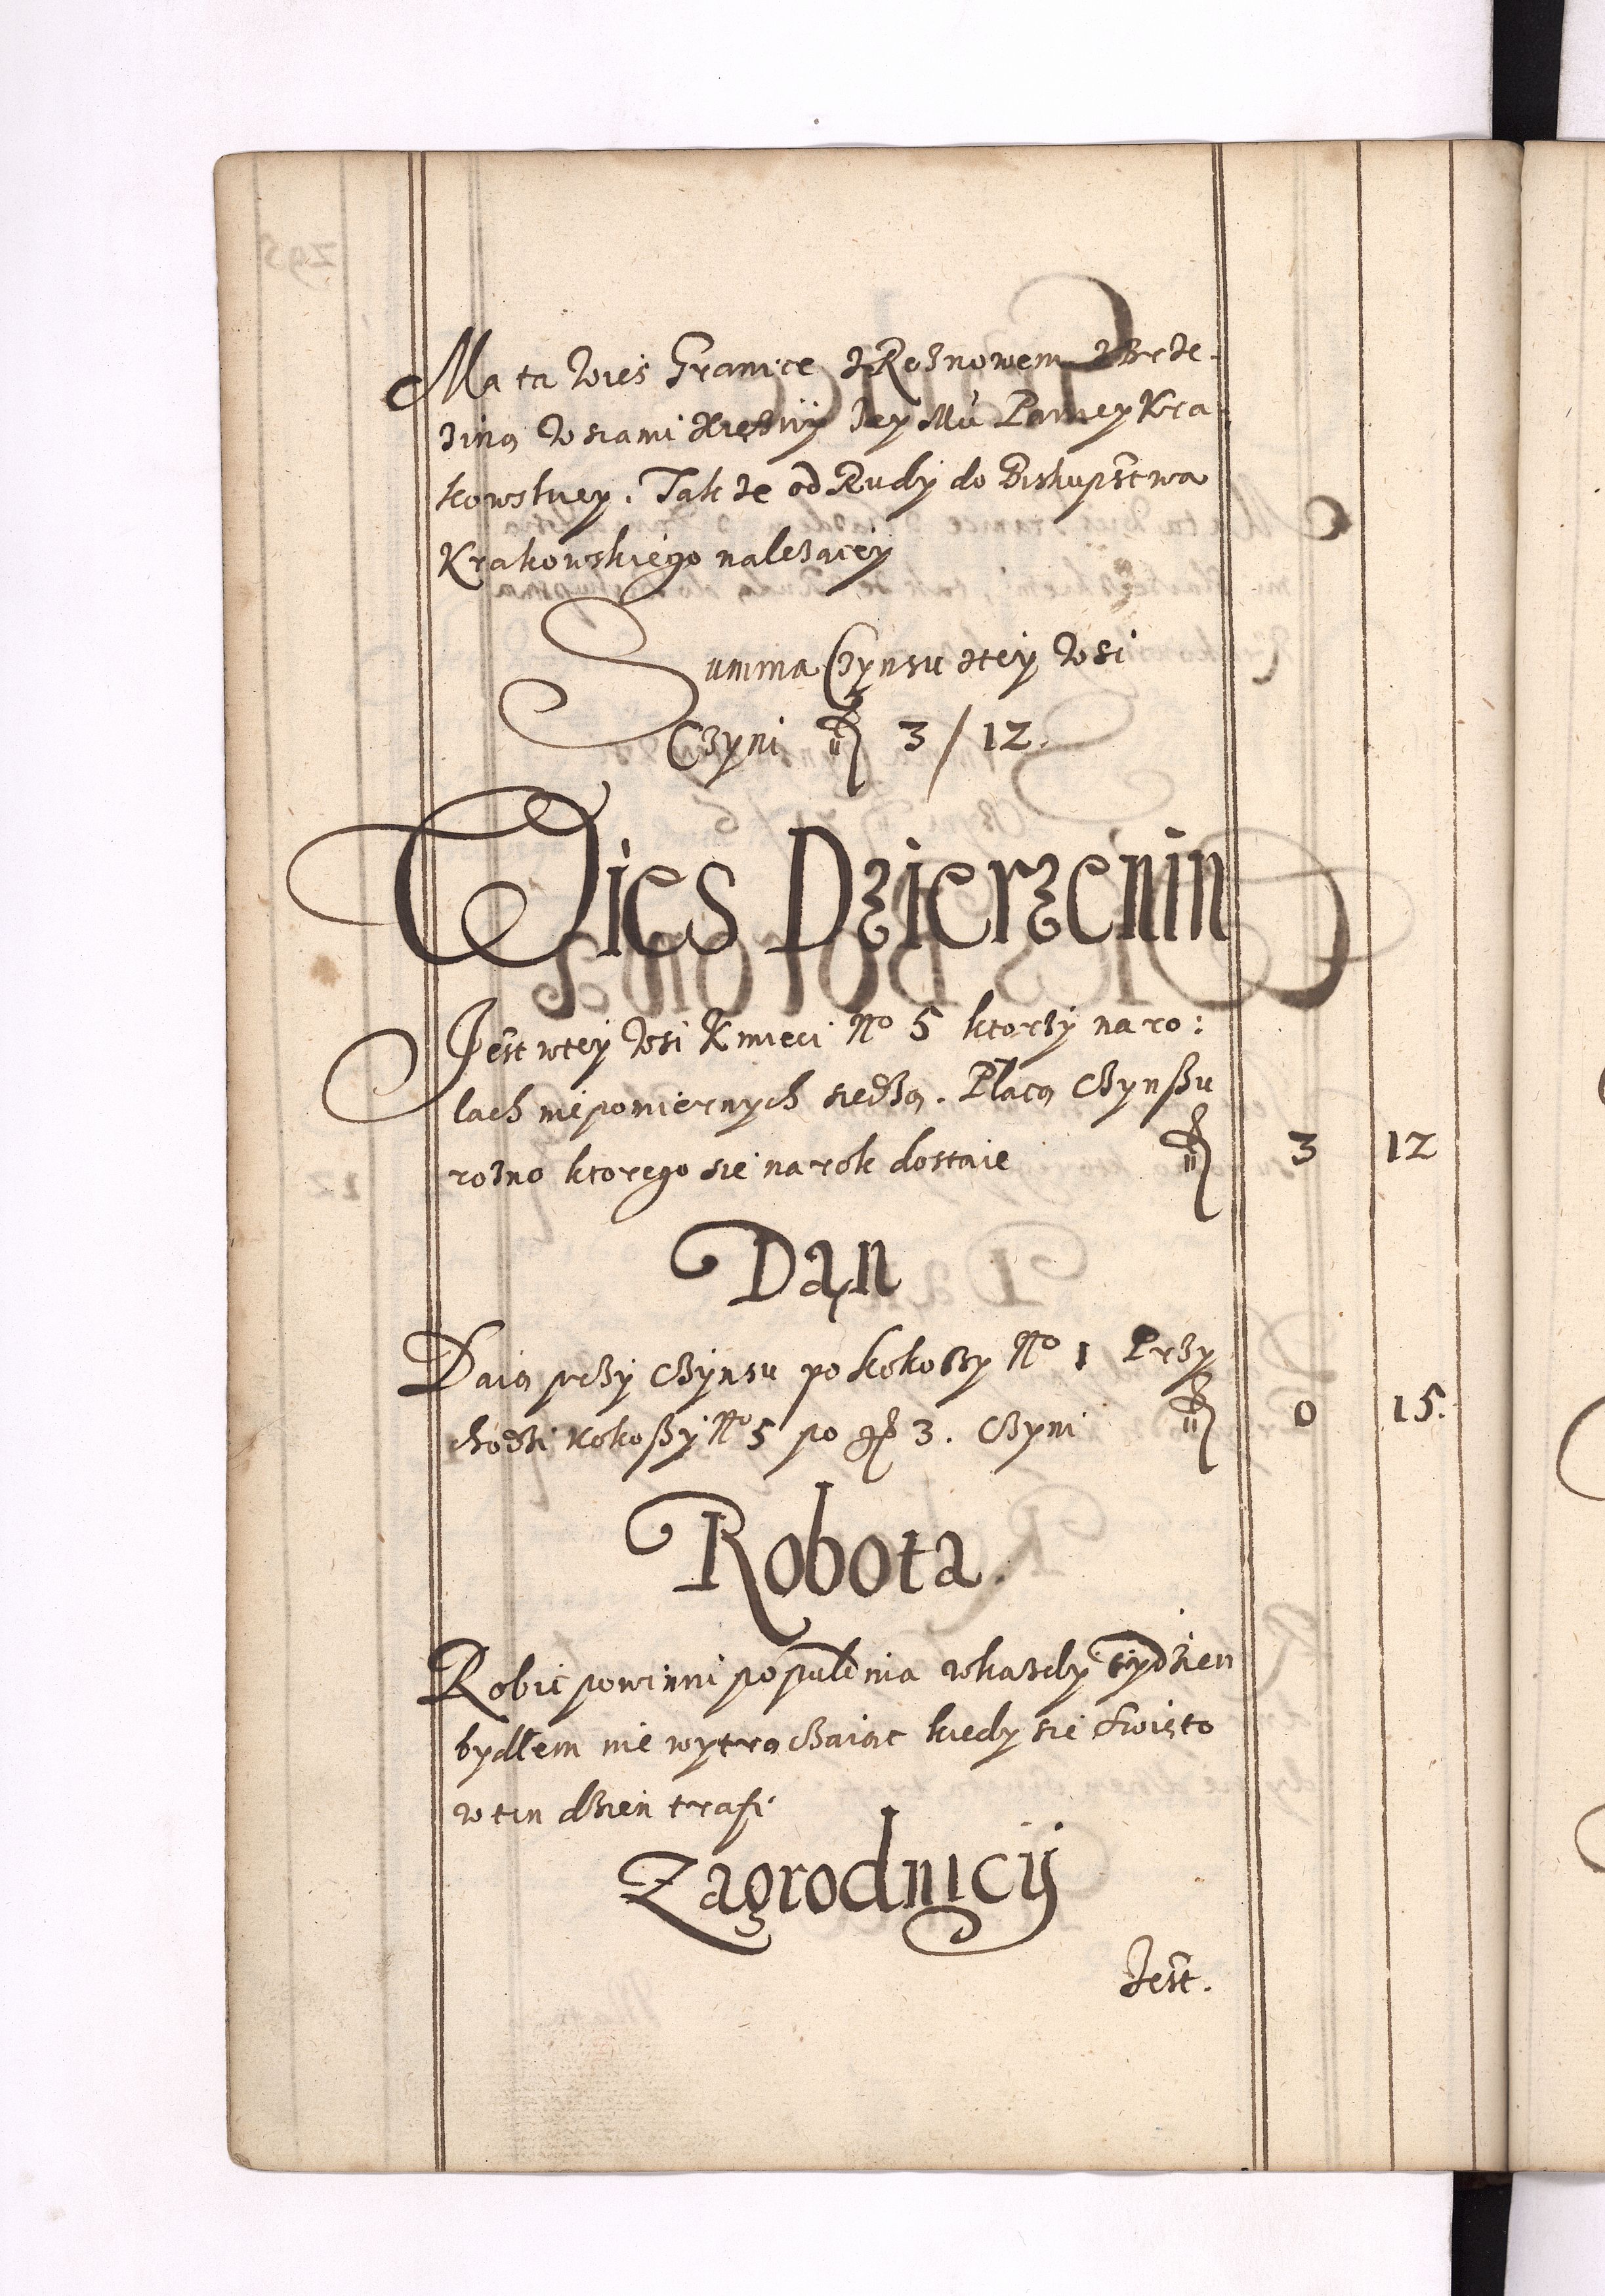 Ma ta wieś Granice z Rożnowem z Brze-
ziną wsiami Xiężny Jey Mci Paniey Kra
kowskiey. Tak że od Rudy do Biskupstwa
Krakowskiego należącey
Summa Czynsu z tey wsi
Czyni fl 3 / 12.
Wies Dzierzenin
Jest w tey wsi Kmieci No 5 ktorzy na ro:
lach niepomiernych siedzą. Płacą czynszu
rożno ktorego sie na rok dostaie fl 3 12
Dan
Daią przy czynsu po kokoszy No 1 Przy
chodzi kokoszy No 5 po gr 3. czyni fl 0 15.
Robota.
Robic powinni po puł dnia w każdy tydzien
bydłem nie wytrączaiąc kiedy sie swięto
w ten dzien trafi
Zagrodnicy
Jest.